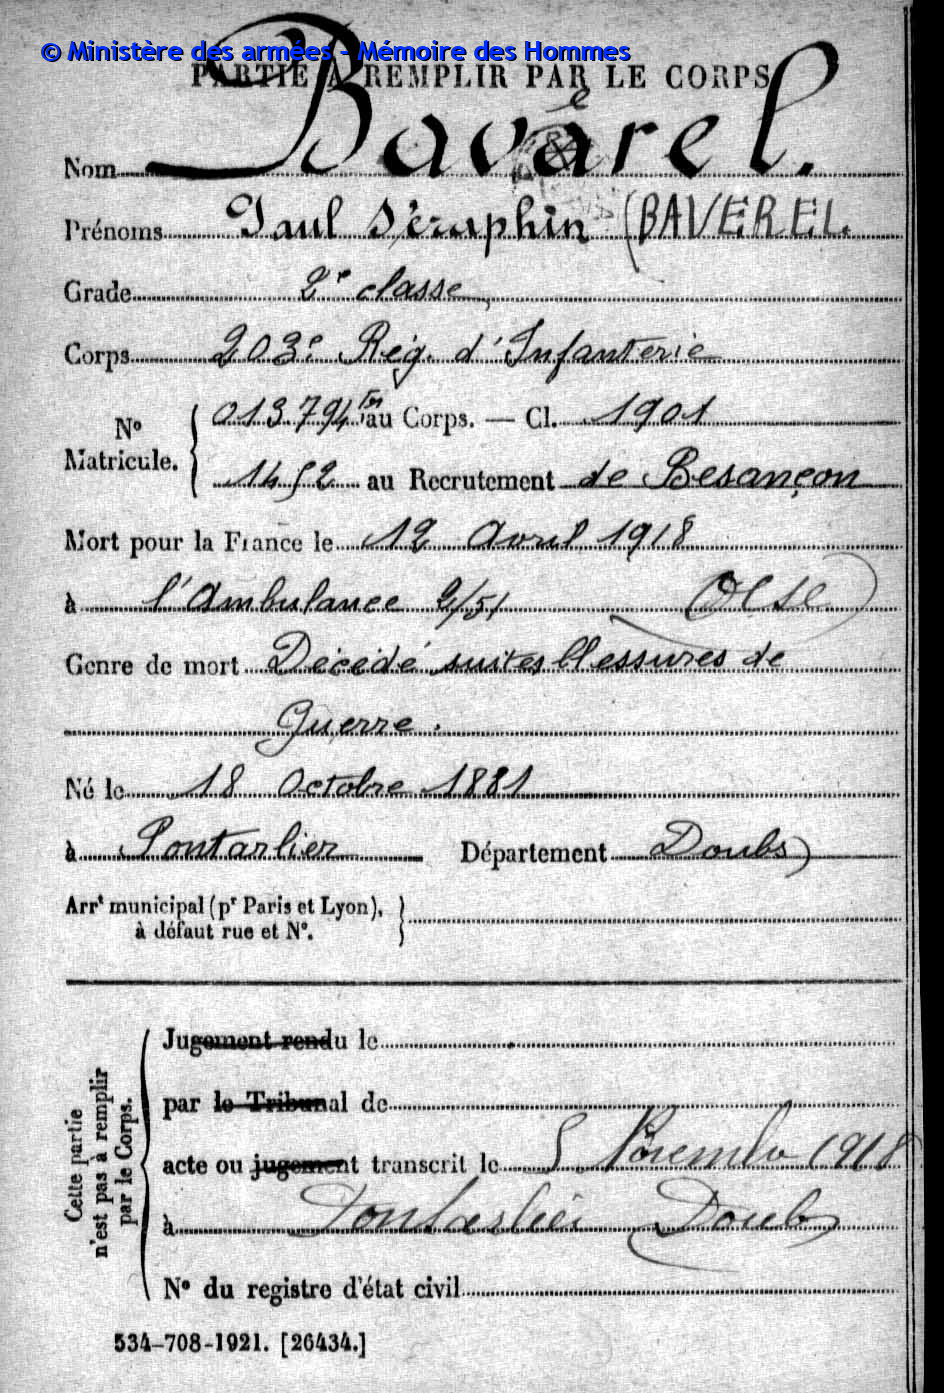 © Ministère des armées - Mémoire des Hommes
PARTIE A REMPLIR PAR LE CORPS
e
Nom Bavarel.
Prénoms Paul Séraphin (BAVEREL.
Grade 2e classe
Corps 203e Rég. d'Infanterie
No Matricule. { 013.794 au Corps. — Cl. 1901
1452 au Recrutement de Besançon
Mort pour la France le 12 Avril 1918
à l'Ambulance 2/51 Oise
Genre de mort Décédé suites blessures de
Guerre.
Né le 18 Octobre 1881
à Pontarlier Département Doubs
Arrt municipal (pr Paris et Lyon), }
à défaut rue et No.
Cette partie
n'est pas à remplir
par le Corps.
Jugement rendu le
par le Tribunal de
acte ou jugement transcrit le 5 Novembre 1918
à Pontarlier Doubs
No du registre d'état civil
534-708-1921. [26434.]